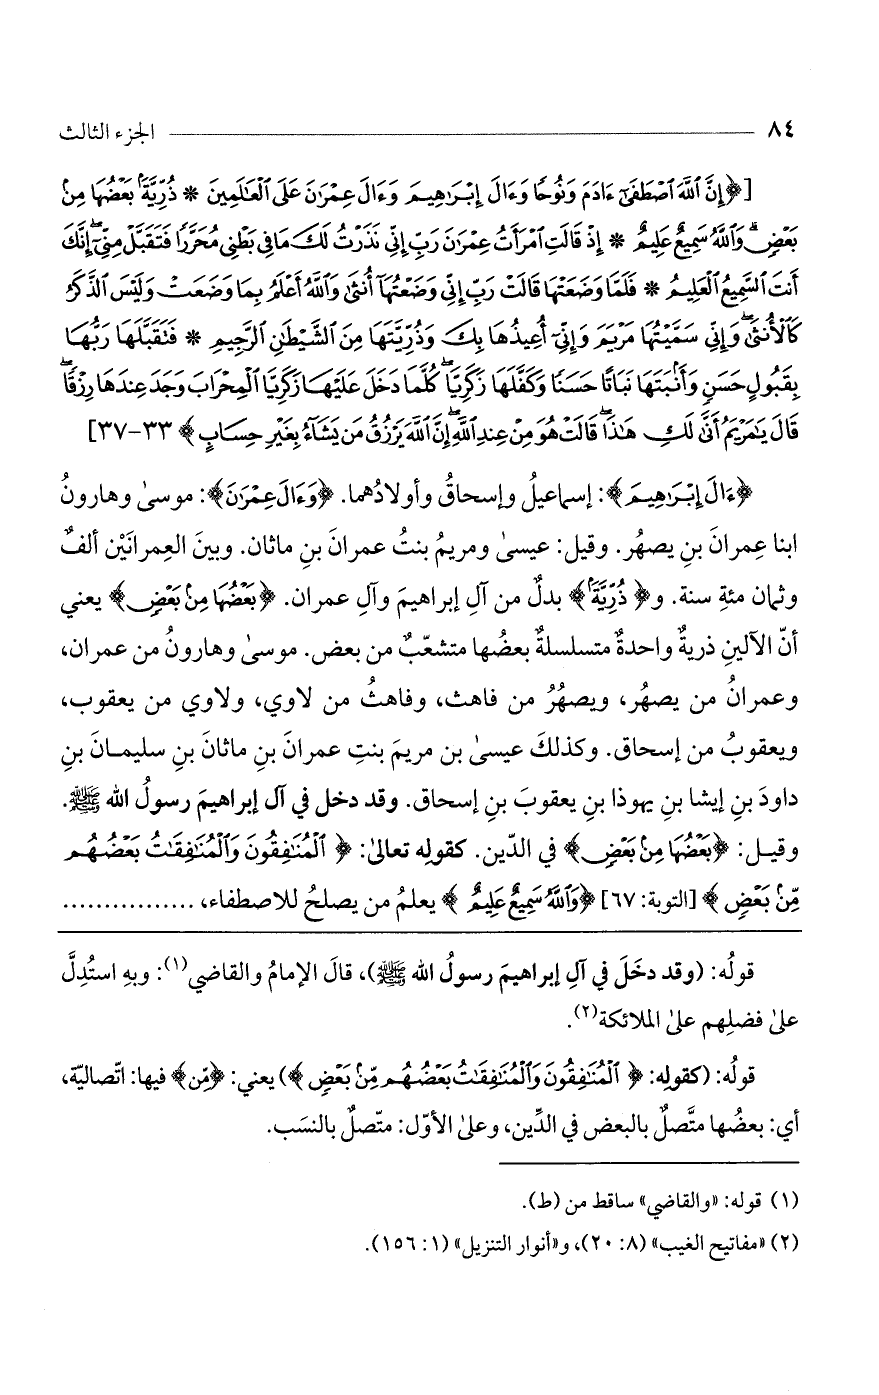 ٨٤ الجزء الثالث
[﴿إِنَّ ٱللَّهَ ٱصْطَفَىٰٓ ءَادَمَ وَنُوحًا وَءَالَ إِبْرَٰهِيمَ وَءَالَ عِمْرَٰنَ عَلَى ٱلْعَٰلَمِينَ * ذُرِّيَّةًۢ بَعْضُهَا مِنۢ
بَعْضٍۗ وَٱللَّهُ سَمِيعٌ عَلِيمٌ * إِذْ قَالَتِ ٱمْرَأَتُ عِمْرَٰنَ رَبِّ إِنِّي نَذَرْتُ لَكَ مَا فِي بَطْنِي مُحَرَّرًا فَتَقَبَّلْ مِنِّيٓۖ إِنَّكَ
أَنتَ ٱلسَّمِيعُ ٱلْعَلِيمُ * فَلَمَّا وَضَعَتْهَا قَالَتْ رَبِّ إِنِّي وَضَعْتُهَآ أُنثَىٰ وَٱللَّهُ أَعْلَمُ بِمَا وَضَعَتْ وَلَيْسَ ٱلذَّكَرُ
كَٱلْأُنثَىٰۖ وَإِنِّي سَمَّيْتُهَا مَرْيَمَ وَإِنِّيٓ أُعِيذُهَا بِكَ وَذُرِّيَّتَهَا مِنَ ٱلشَّيْطَٰنِ ٱلرَّجِيمِ * فَتَقَبَّلَهَا رَبُّهَا
بِقَبُولٍ حَسَنٍ وَأَنۢبَتَهَا نَبَاتًا حَسَنًا وَكَفَّلَهَا زَكَرِيَّاۖ كُلَّمَا دَخَلَ عَلَيْهَا زَكَرِيَّا ٱلْمِحْرَابَ وَجَدَ عِندَهَا رِزْقًاۖ
قَالَ يَٰمَرْيَمُ أَنَّىٰ لَكِ هَٰذَاۖ قَالَتْ هُوَ مِنْ عِندِ ٱللَّهِۖ إِنَّ ٱللَّهَ يَرْزُقُ مَن يَشَآءُ بِغَيْرِ حِسَابٍ﴾ ٣٣-٣٧]
﴿ءَالَ إِبْرَٰهِيمَ﴾: إسماعيلُ وإسحاقُ وأولادُهما. ﴿وَءَالَ عِمْرَٰنَ﴾: موسىٰ وهارونُ
ابنا عِمرانَ بنِ يصهُر. وقيل: عيسىٰ ومريمُ بنتُ عمرانَ بنِ ماثان. وبينَ العِمرانَيْن ألفٌ
وثمان مئةِ سنة. و﴿ذُرِّيَّةًۢ﴾ بدلٌ من آلِ إبراهيمَ وآلِ عمران. ﴿بَعْضُهَا مِنۢ بَعْضٍ﴾ يعني
أنّ الآلينِ ذريةٌ واحدةٌ متسلسلةٌ بعضُها متشعّبٌ من بعض. موسىٰ وهارونُ من عمران،
وعمرانُ من يصهُر، ويصهُرُ من فاهث، وفاهثُ من لاوي، ولاوي من يعقوب،
ويعقوبُ من إسحاق. وكذلكَ عيسىٰ بن مريمَ بنتِ عمرانَ بنِ ماثانَ بنِ سليمانَ بنِ
داودَ بنِ إيشا بنِ يهوذا بنِ يعقوبَ بنِ إسحاق. وقد دخل في آل إبراهيمَ رسولُ الله ﷺ.
وقيل: ﴿بَعْضُهَا مِنۢ بَعْضٍ﴾ في الدّين. كقولِه تعالىٰ: ﴿ٱلْمُنَٰفِقُونَ وَٱلْمُنَٰفِقَٰتُ بَعْضُهُم
مِّنۢ بَعْضٍ﴾ [التوبة: ٦٧] ﴿وَٱللَّهُ سَمِيعٌ عَلِيمٌ﴾ يعلمُ من يصلحُ للاصطفاء، ................
قولُه: (وقد دخَلَ في آلِ إبراهيمَ رسولُ الله ﷺ)، قالَ الإمامُ والقاضي(١): وبهِ استُدِلَّ
علىٰ فضلِهم علىٰ الملائكة(٢).
قولُه: (كقولِه: ﴿ٱلْمُنَٰفِقُونَ وَٱلْمُنَٰفِقَٰتُ بَعْضُهُم مِّنۢ بَعْضٍ﴾) يعني: ﴿مِّن﴾ فيها: اتّصاليّة،
أي: بعضُها متَّصلٌ بالبعض في الدِّين، وعلىٰ الأوّل: متّصلٌ بالنسَب.
(١) قوله: «والقاضي» ساقط من (ط).
(٢) «مفاتيح الغيب» (٨: ٢٠)، و«أنوار التنزيل» (١: ١٥٦).